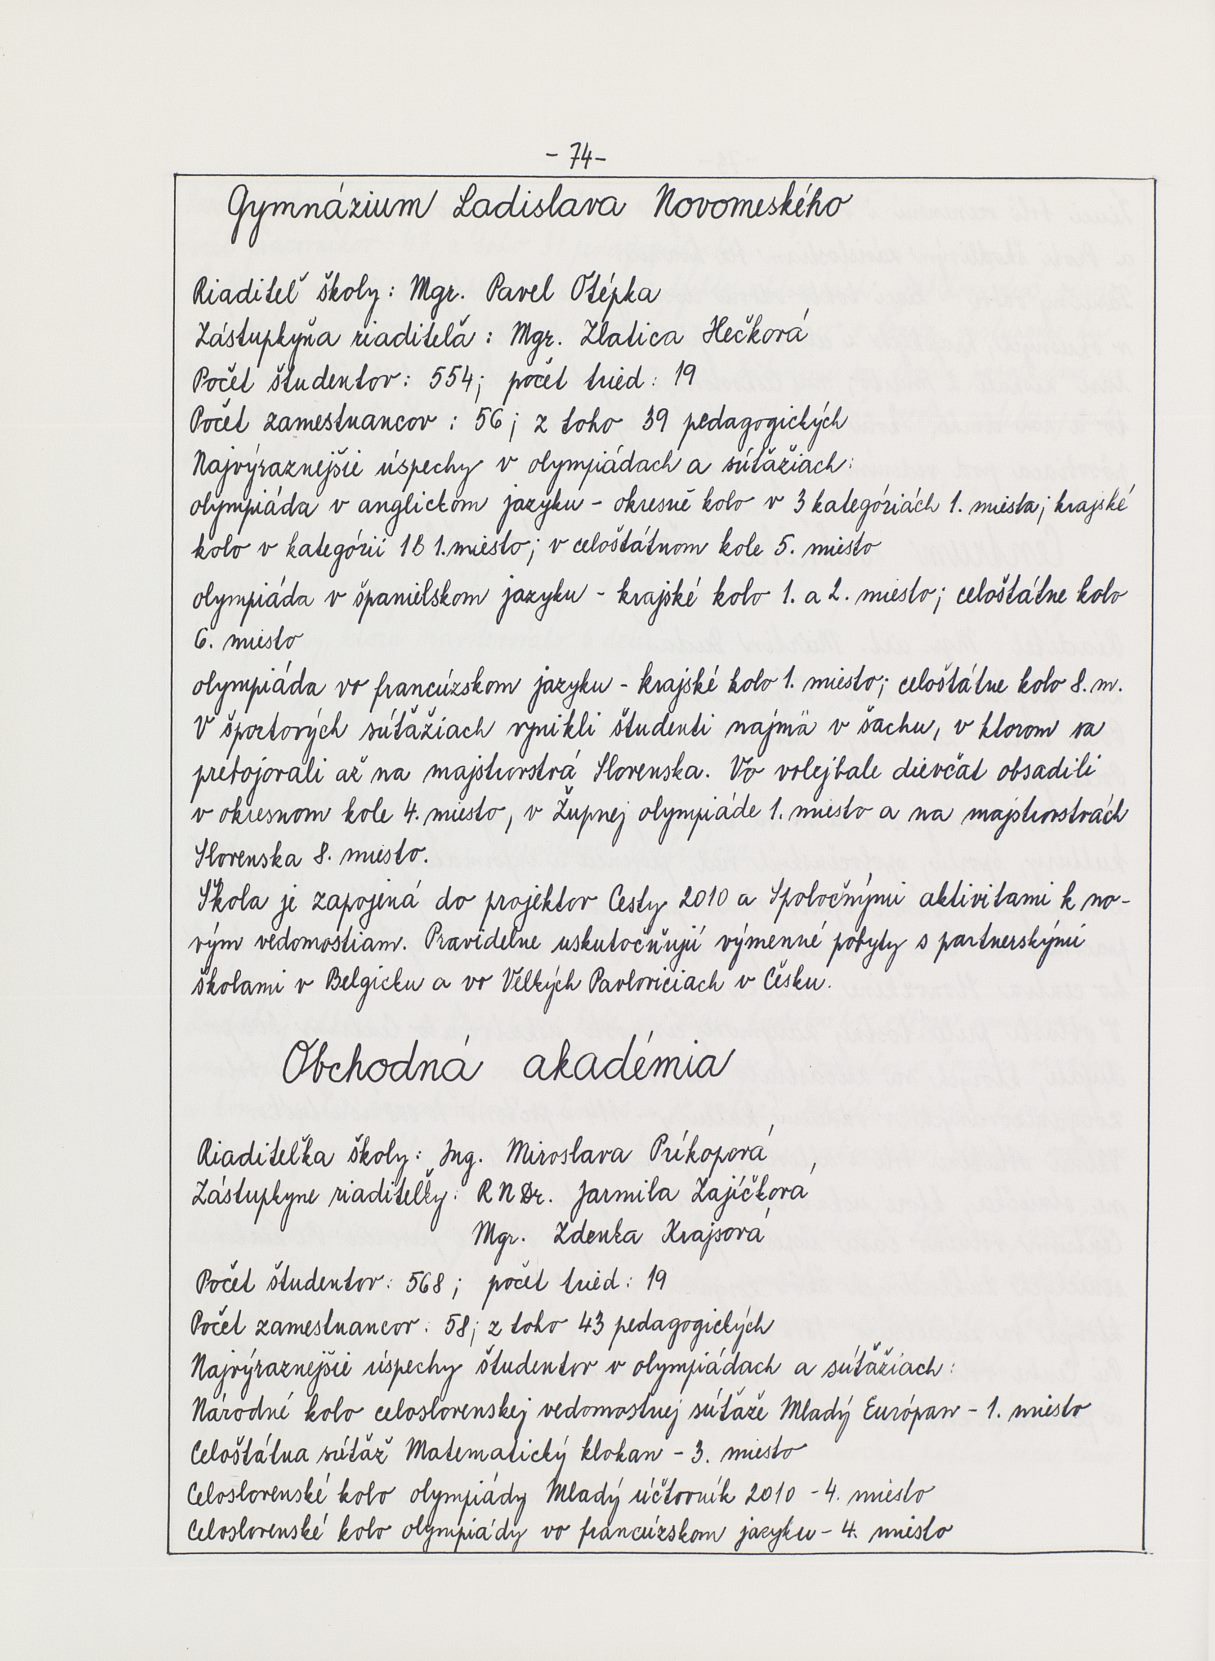 - 74 -
Gymnázium Ladislava Novomeského
Riaditeľ školy: Mgr. Pavel Otépka
Zástupkyňa riaditeľa: Mgr. Zlatica Hečková
Počet študentov: 554; počet tried: 19
Počet zamestnancov: 56; z toho 39 pedagogických
Najvýraznejšie úspechy v olympiádach a súťažiach:
olympiáda v anglictom jazyku - okresné kolo v 3 kategóriách 1. miesta; krajské
kolo v kategórii 1B 1. miesto; v celoštátnom kole 5. miesto
olympiáda v španielskom jazyku - krajské kolo 1. a 2. miesto; celoštátne kolo
6. miesto
olympiáda vo francúzskom jazyku - krajské kolo 1. miesto; celoštátne kolo 8. m.
V športových súťažiach vynikli študenti najmä v šachu, v ktorom sa
prebojovali až na majstrovstvá Slovenska. Vo volejbale dievčat obsadili
v okresnom kole 4. miesto, v Župnej olympiáde 1. miesto a na majstrovstvách
Slovenska 8. miesto.
Škola je zapojená do projektov Cesty 2010 a Spoločnými aktivitami k no-
vým vedomostiam. Pravidelne uskutočňujú výmenné pobyty s partnerskými
školami v Belgicku a vo Veľkých Pavloviciach v Česku.
Obchodná akadémia
Riaditeľka školy: Ing. Miroslava Príkopová
Zástupkyne riaditeľky: RNDr. Jarmila Zajíčková
Mgr. Zdenka Krajsová
Počet študentov: 568; počet tried: 19
Počet zamestnancov: 58; z toho 43 pedagogických
Najvýraznejšie úspechy študentov v olympiádach a súťažiach:
Národné kolo celoslovenskej vedomostnej súťaže Mladý Európan - 1. miesto
Celoštátna súťaž Matematický klokan - 3. miesto
Celoslovenské kolo olympiády Mladý účtovník 2010 - 4. miesto
Celoslovenské kolo olympiády vo francúzskom jazyku - 4. miesto